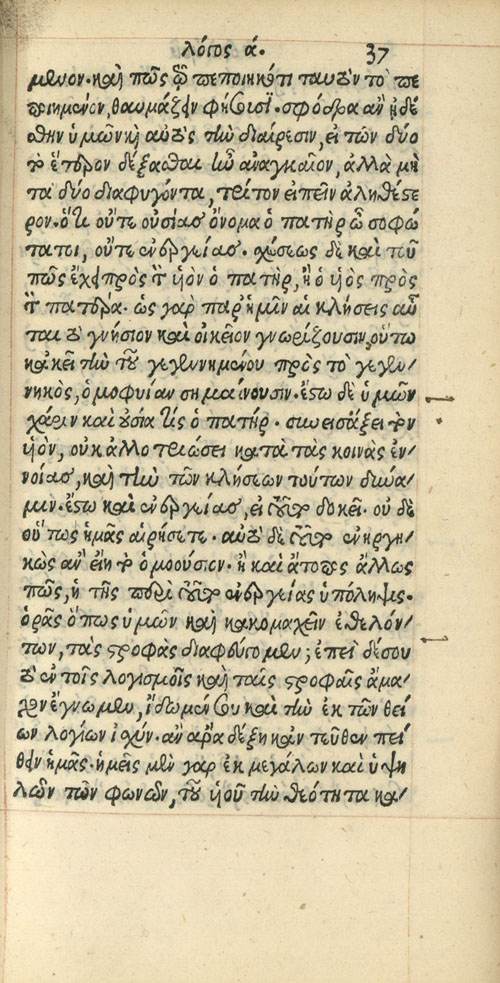 λόγος ά. 37
μενον. καὶ πῶς ᾧ πεποιηκότι ταυτὸν τὸ πε
ποιημένον, θαυμάζειν φήσουσι. σφόδρα ἂν ᾐδέ
σθην ὑμῶν καὶ αὐτὸς τὴν διαίρεσιν, εἰ τῶν δύο
τὸ ἕτερον δέξασθαι ἦν ἀναγκαῖον, ἀλλὰ μὴ
τὰ δύο διαφυγόντα, τρίτον εἰπεῖν ἀληθέστε
ρον. ὅτι οὔτε οὐσίας ὄνομα ὁ πατὴρ ὦ σοφώ
τατοι, οὔτε ἐνεργείας. σχέσεως δὲ καὶ τοῦ
πῶς ἔχει πρὸς τὸν υἱὸν ὁ πατὴρ, ἢ ὁ υἱὸς πρὸς
τὸν πατέρα. ὡς γὰρ παρ' ἡμῖν αἱ κλήσεις αὗ
ται τὸ γνήσιον καὶ οἰκεῖον γνωρίζουσιν, οὕτω
κἀκεῖ τὴν τοῦ γεγεννημένου πρὸς τὸ γεγεν
νηκὸς, ὁμοφυίαν σημαίνουσιν. ἔστω δὲ ὑμῶν
χάριν καὶ οὐσία τὶς ὁ πατήρ. συνεισάξει τὸν
υἱὸν, οὐκ ἀλλοτριώσει κατὰ τὰς κοινὰς ἐν
νοίας, καὶ τὴν τῶν κλήσεων τούτων δύνα
μιν. ἔστω καὶ ἐνεργείας, εἰ τοῦτο δοκεῖ. οὐδὲ
οὕτως ἡμᾶς αἱρήσετε. αὐτὸ δὲ τοῦτο ἐνηργη
κὼς ἂν εἴη τὸ ὁμοούσιον. ἢ καὶ ἄτοπος ἄλλως
πῶς, ἡ τῆς περὶ τοῦτο ἐνεργείας ὑπόληψις.
ὁρᾷς ὅπως ὑμῶν καὶ κακομαχεῖν ἐθελόν
των, τὰς στροφὰς διαφεύγομεν; ἐπεὶ δέ σου
τὸ ἐν τοῖς λογισμοῖς καὶ ταῖς στροφαῖς ἄμα
χον ἔγνωμεν, ἴδωμέν σου καὶ τὴν ἐκ τῶν θεί
ων λογίων ἰσχύν. ἂν ἄρα δέξῃ κἀντεῦθεν πεί
θειν ἡμᾶς. ἡμεῖς μὲν γὰρ ἐκ μεγάλων καὶ ὑψη
λῶν τῶν φωνῶν, τοῦ υἱοῦ τὴν θεότητα κα